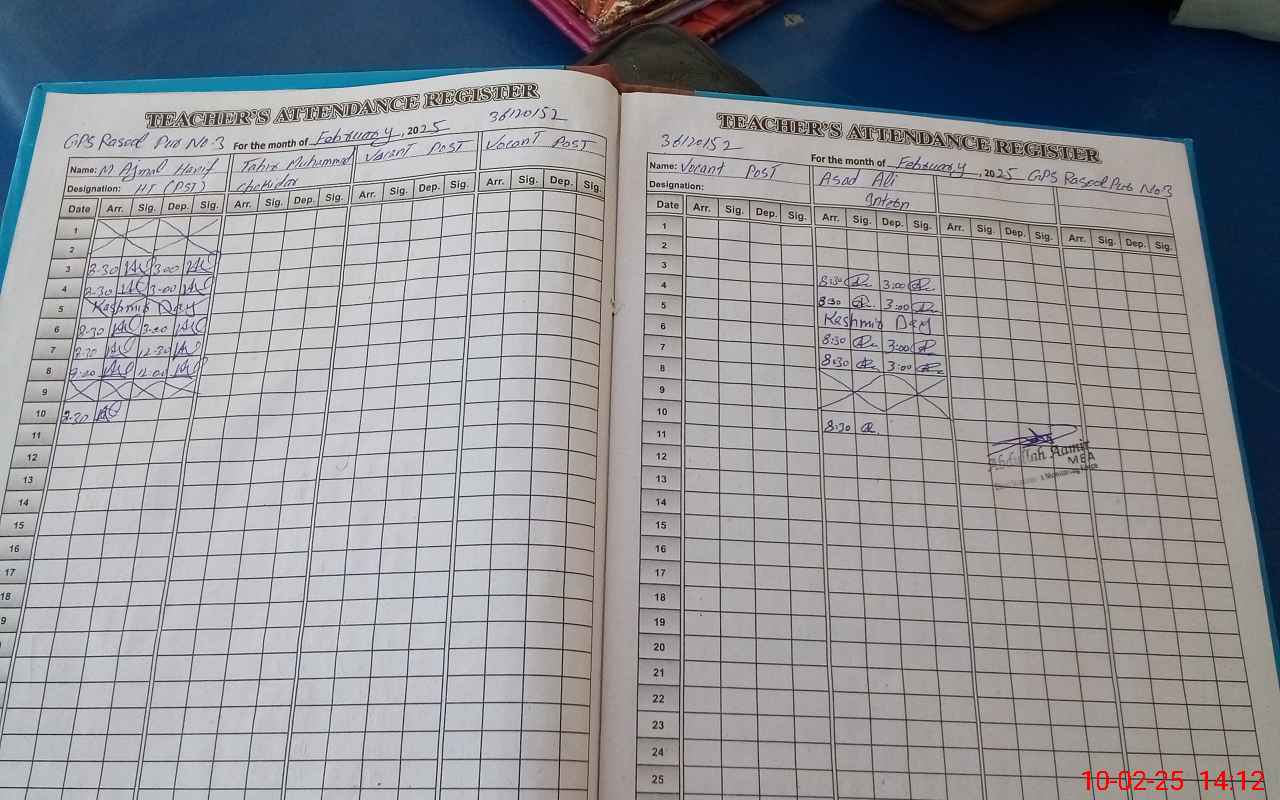 TEACHER'S ATTENDANCE REGISTER
GPS Rasool Pur No 3 For the month of February, 2025 36120152
Name: M Ajmal Hanif Tahir Muhammad Vacant Post Vocant Post
Designation: HT (PST) Chokidar
Date Arr. Sig. Dep. Sig. Arr. Sig. Dep. Sig. Arr. Sig. Dep. Sig. Arr. Sig. Dep. Sig.
1
2
3 8-30 3-00
4 8-30 3-00
5 Kashmir Day
6 8-30 3-00
7 8-30 12-30
8 9-00 12-00
9
10 8-30
11
12
13
14
15
16
17
18
9
TEACHER'S ATTENDANCE REGISTER
36120152 For the month of February, 2025 GPS Rasool Pur No 3
Name: Vocant Post Asad Ali
Designation: Intern
Date Arr. Sig. Dep. Sig. Arr. Sig. Dep. Sig. Arr. Sig. Dep. Sig. Arr. Sig. Dep. Sig.
1
2
3
4 8:30 3:00
5 8:30 3:00
6 Kashmir Day
7 8:30 3:00
8 8:30 3:00
9
10
11 8:30
12 Abdullah Aamir
MEA
13
14
15
16
17
18
19
20
21
22
23
24
25
10-02-25 14:12